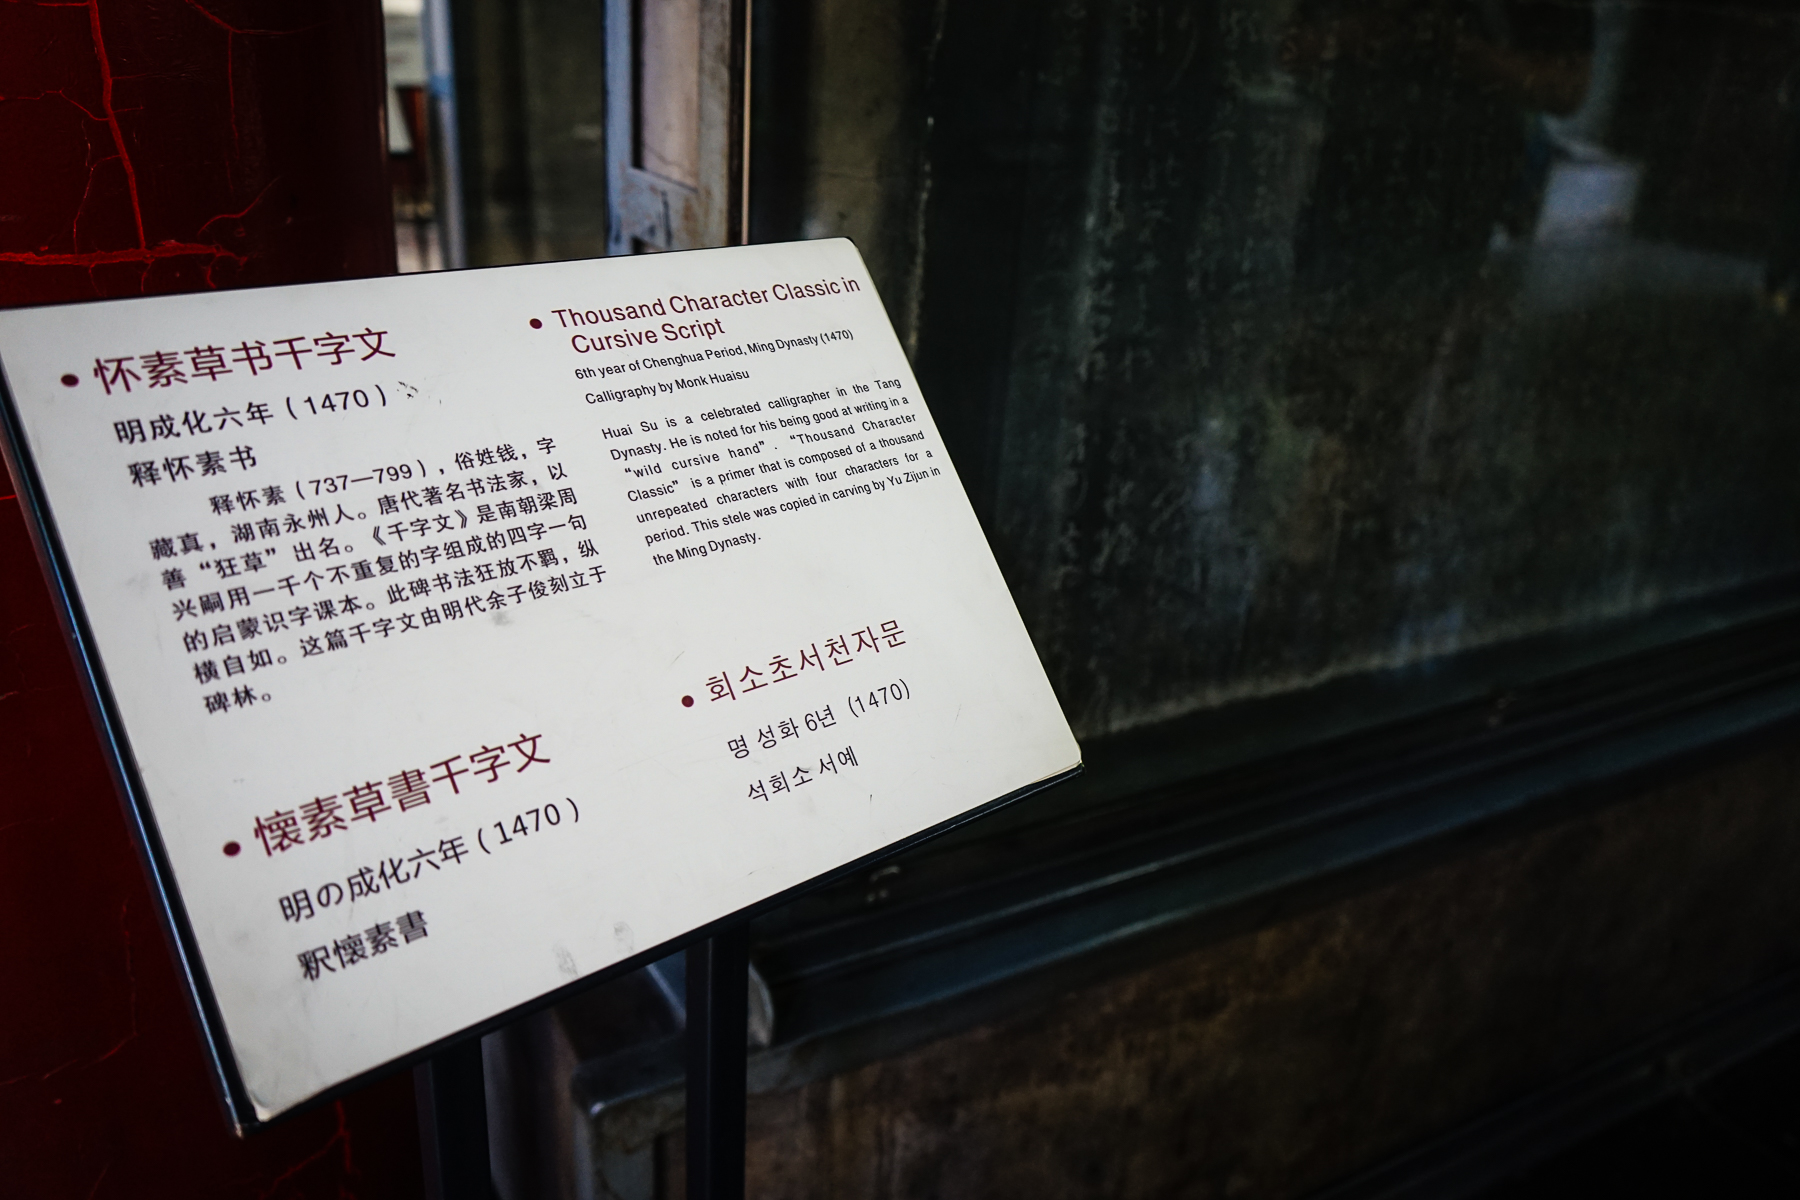 怀素草书千字文
明成化六年（1470）
释怀素书
释怀素（737—799），俗姓钱，字
藏真，湖南永州人。唐代著名书法家，以
善“狂草”出名。《千字文》是南朝梁周
兴嗣用一千个不重复的字组成的四字一句
的启蒙识字课本。此碑书法狂放不羁，纵
横自如。这篇千字文由明代余子俊刻立于
碑林。
Thousand Character Classic in
Cursive Script
6th year of Chenghua Period, Ming Dynasty (1470)
Calligraphy by Monk Huaisu
Huai Su is a celebrated calligrapher in the Tang
Dynasty. He is noted for his being good at writing in a
“wild cursive hand”. “Thousand Character
Classic” is a primer that is composed of a thousand
unrepeated characters with four characters for a
period. This stele was copied in carving by Yu Zijun in
the Ming Dynasty.
懷素草書千字文
明の成化六年（1470）
釈懐素書
회소초서천자문
명 성화 6년 (1470)
석회소 서예